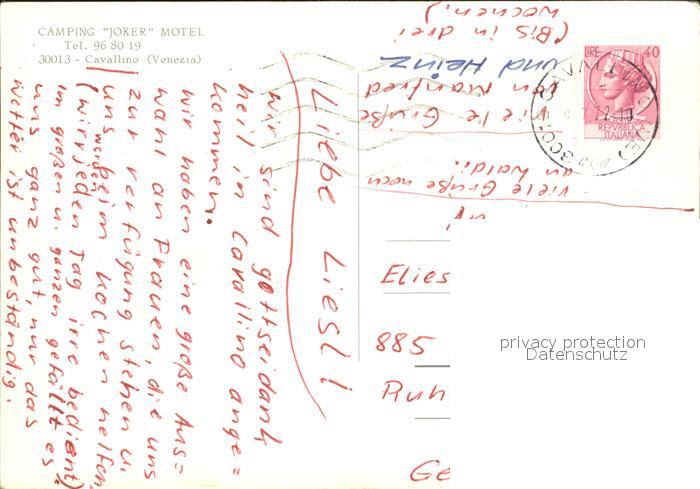 CAMPING "JOKER" MOTEL
Tel. 96 80 19
30013 - Cavallino (Venezia)
Liebe Liesl!
Wir sind gottseidank
heil in Cavallino ange=
kommen.
Wir haben eine große Aus=
wahl an Frauen, die uns
zur Verfügung stehen u.
uns beim Kochen helfen.
(wir werden jeden Tag irre bedient)
Im großen u. ganzen gefällt es
uns ganz gut, nur das
Wetter ist unbeständig.
viele Grüße noch
an Waldi.
viele Grüße
an Manfred
und Heinz
(Bis in drei
Wochen.)
LIRE 40
REPVBBLICA
ITALIANA
Elies
885
Ruh
Ge
privacy protection
Datenschutz